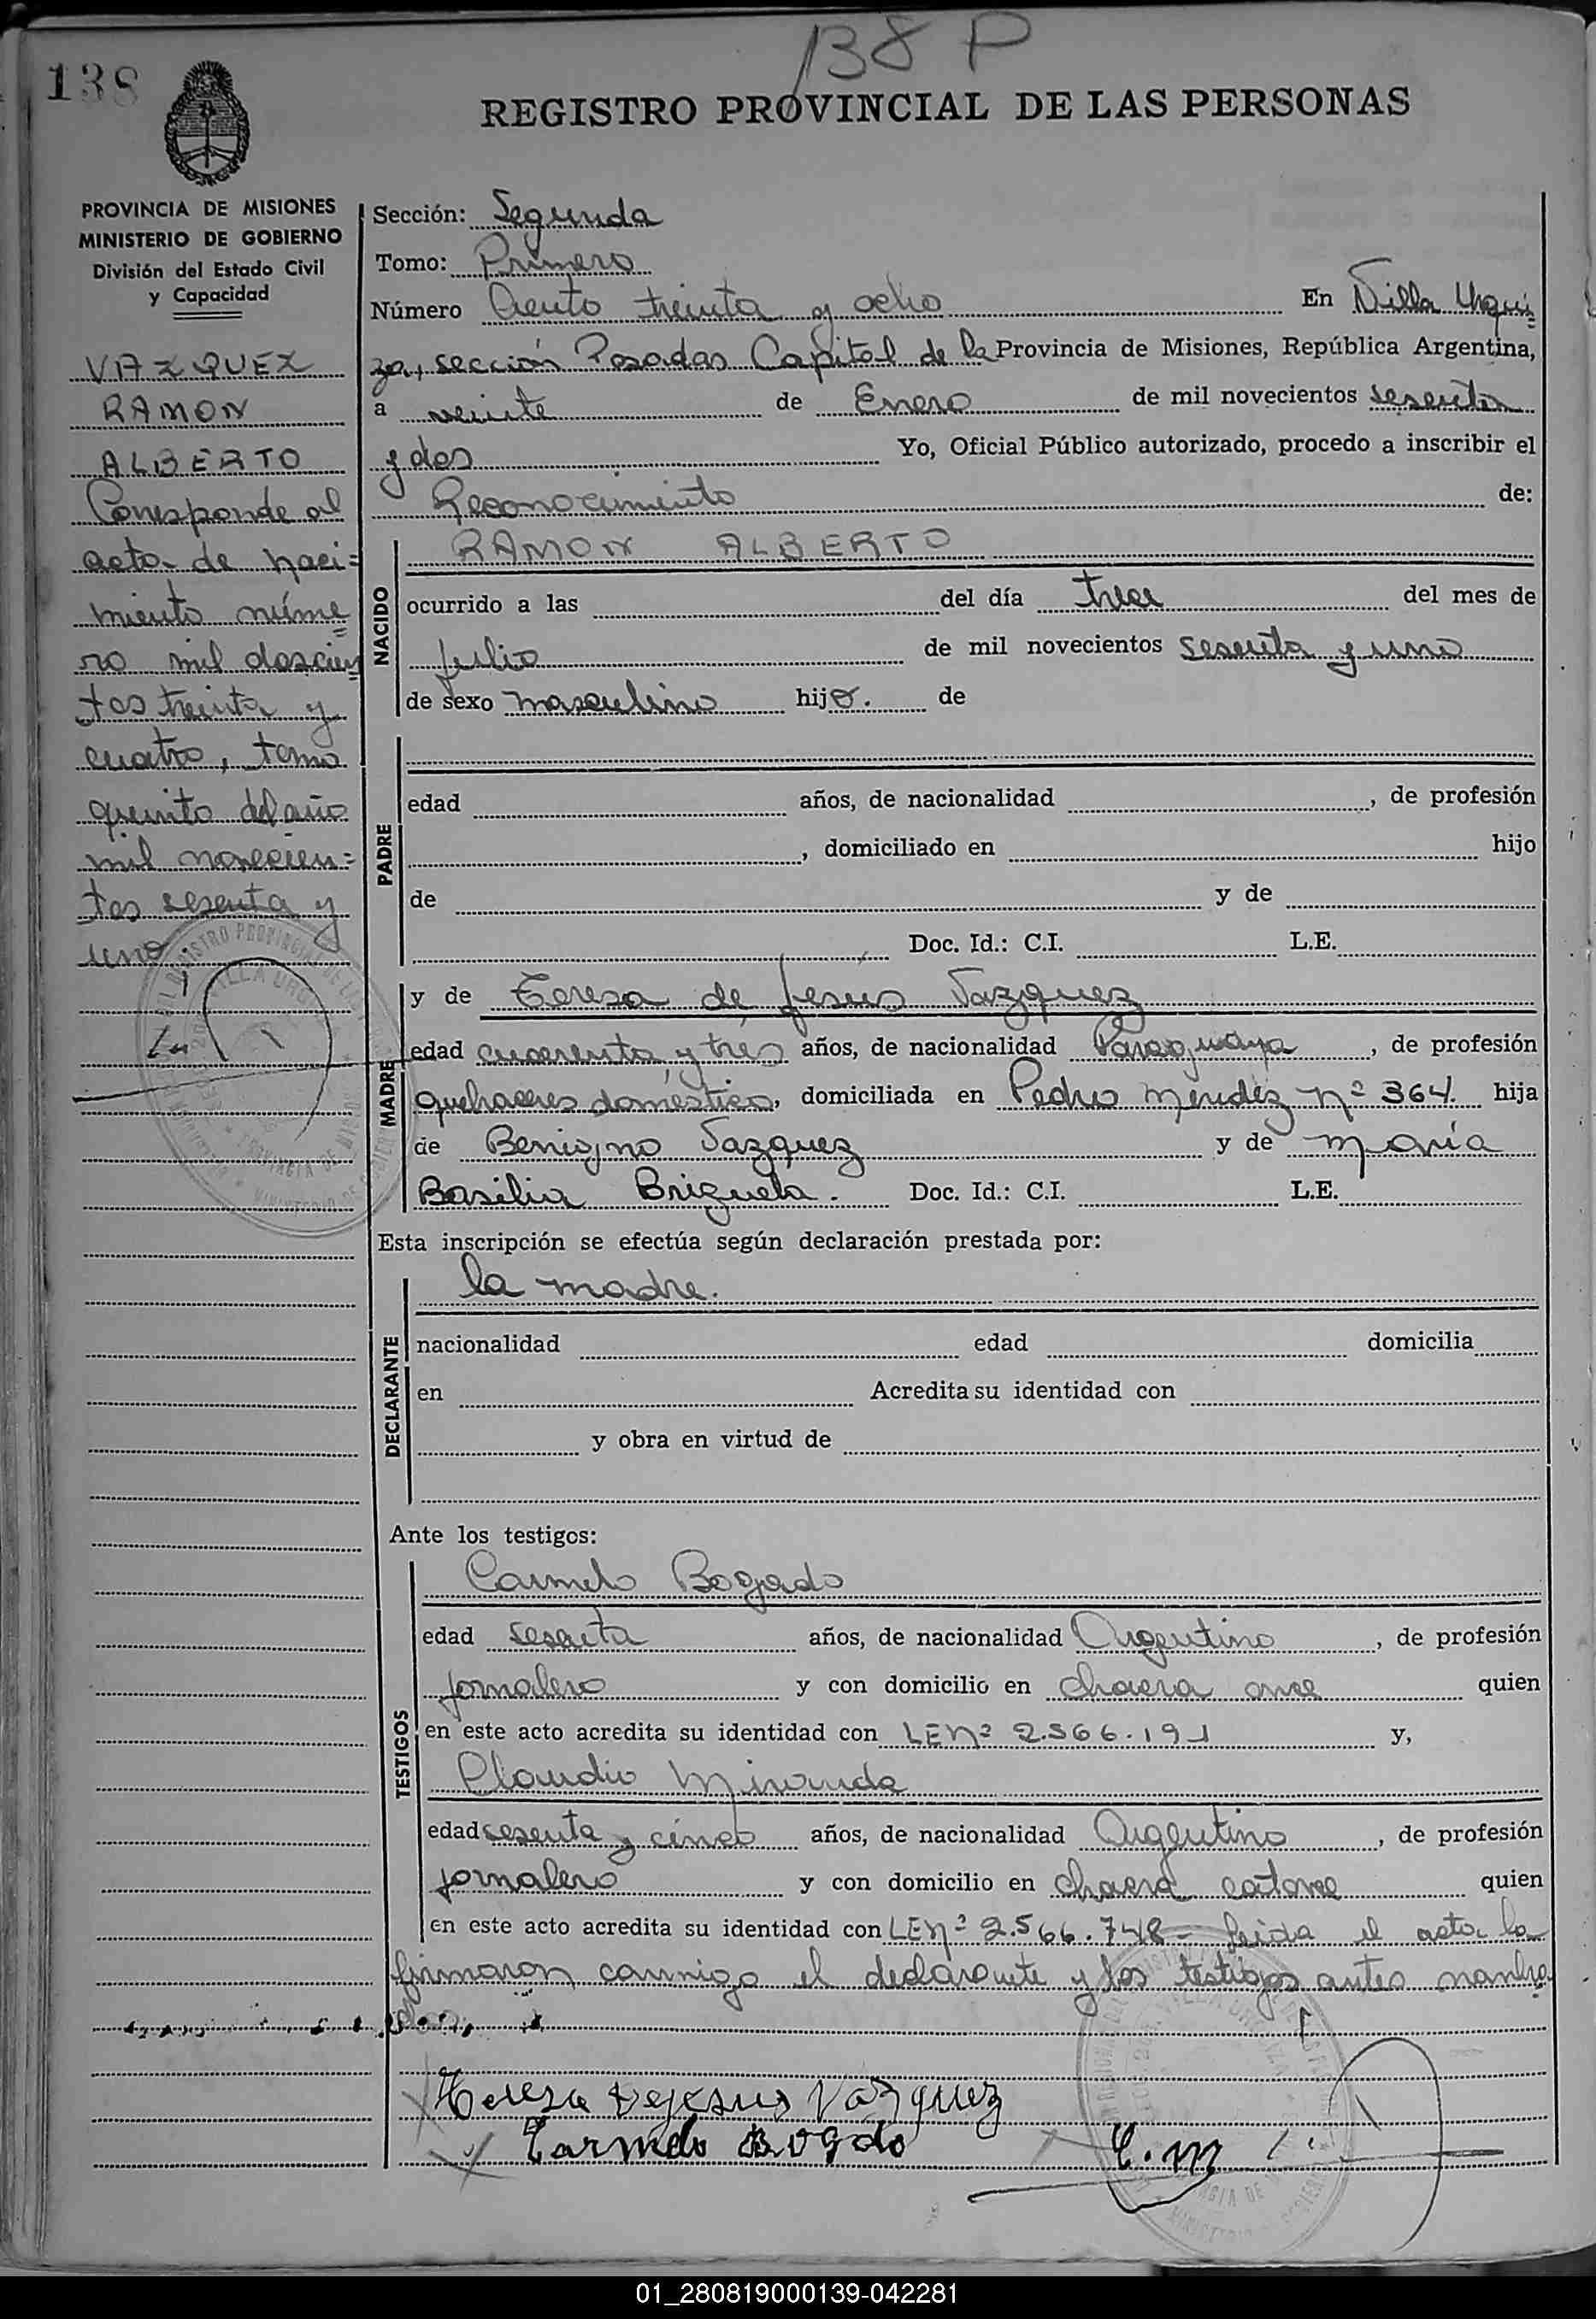 138 P
138
REGISTRO PROVINCIAL DE LAS PERSONAS
PROVINCIA DE MISIONES
MINISTERIO DE GOBIERNO
División del Estado Civil
y Capacidad
VAZQUEZ
RAMON
ALBERTO
Corresponde al
acta de naci=
miento núme=
ro mil doscien=
tos treinta y
cuatro, tomo
quinto del año
mil novecien=
tos sesenta y
uno.
Sección: Segunda
Tomo: Primero
Número Ciento treinta y ocho En Villa Urqui=
za, sección Posadas Capital de la Provincia de Misiones, República Argentina,
a veinte de Enero de mil novecientos sesenta
y dos Yo, Oficial Público autorizado, procedo a inscribir el
Reconocimiento de:
NACIDO
RAMON ALBERTO
ocurrido a las del día trece del mes de
julio de mil novecientos sesenta y uno
de sexo masculino hijo. de
PADRE
edad años, de nacionalidad , de profesión
, domiciliado en hijo
de y de
Doc. Id.: C.I. L.E.
MADRE
y de Teresa de Jesús Vazquez
edad cuarenta y tres años, de nacionalidad Paraguaya , de profesión
quehaceres domésticos, domiciliada en Pedro Mendez Nº 364. hija
de Benigno Vazquez y de María
Basilia Brizuela. Doc. Id.: C.I. L.E.
Esta inscripción se efectúa según declaración prestada por:
DECLARANTE
la madre.
nacionalidad edad domicilia
en Acredita su identidad con
y obra en virtud de
Ante los testigos:
TESTIGOS
Carmelo Bogado
edad sesenta años, de nacionalidad Argentino , de profesión
jornalero y con domicilio en chacra once quien
en este acto acredita su identidad con LE Nº 2.566.191 y,
Claudio Miranda
edad sesenta y cinco años, de nacionalidad Argentino , de profesión
jornalero y con domicilio en chacra catorce quien
en este acto acredita su identidad con LE Nº 2.566.748 - Leida el acta la
firmaron conmigo el declarante y los testigos antes nombra
dos.
Teresa Dejesus Vazquez
Carmelo Bogado
C. M
01_280819000139-042281